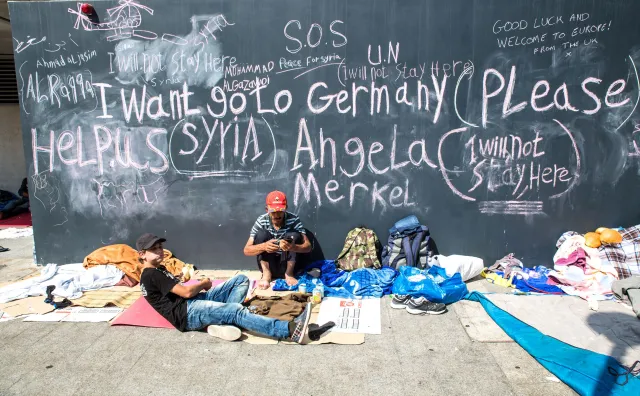 S.O.S
Peace For syria
U.N
(I will not stay Here)
GOOD LUCK AND
WELCOME TO EUROPE!
FROM THE UK
x
Ahmad al Jasim
(ALRaqqa)
I will not stay Here
Syria
MOHAMMAD
I want go to Germany (PLease)
HeLP US (SYRIA) AngeLa
MerkeL
(I will not
stay Here)